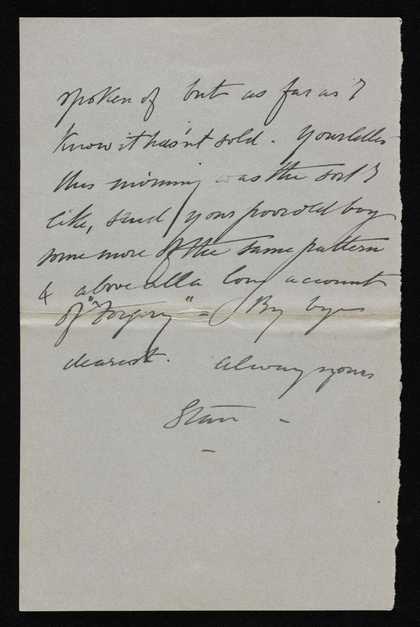 spoken of but as far as I
know it hasn't sold. Your letter
this morning was the sort I
like, send your poor old boy
some more of the same pattern
& above all a long account
of "Forgery" = By bye
dearest. Always yours
Stan -
-